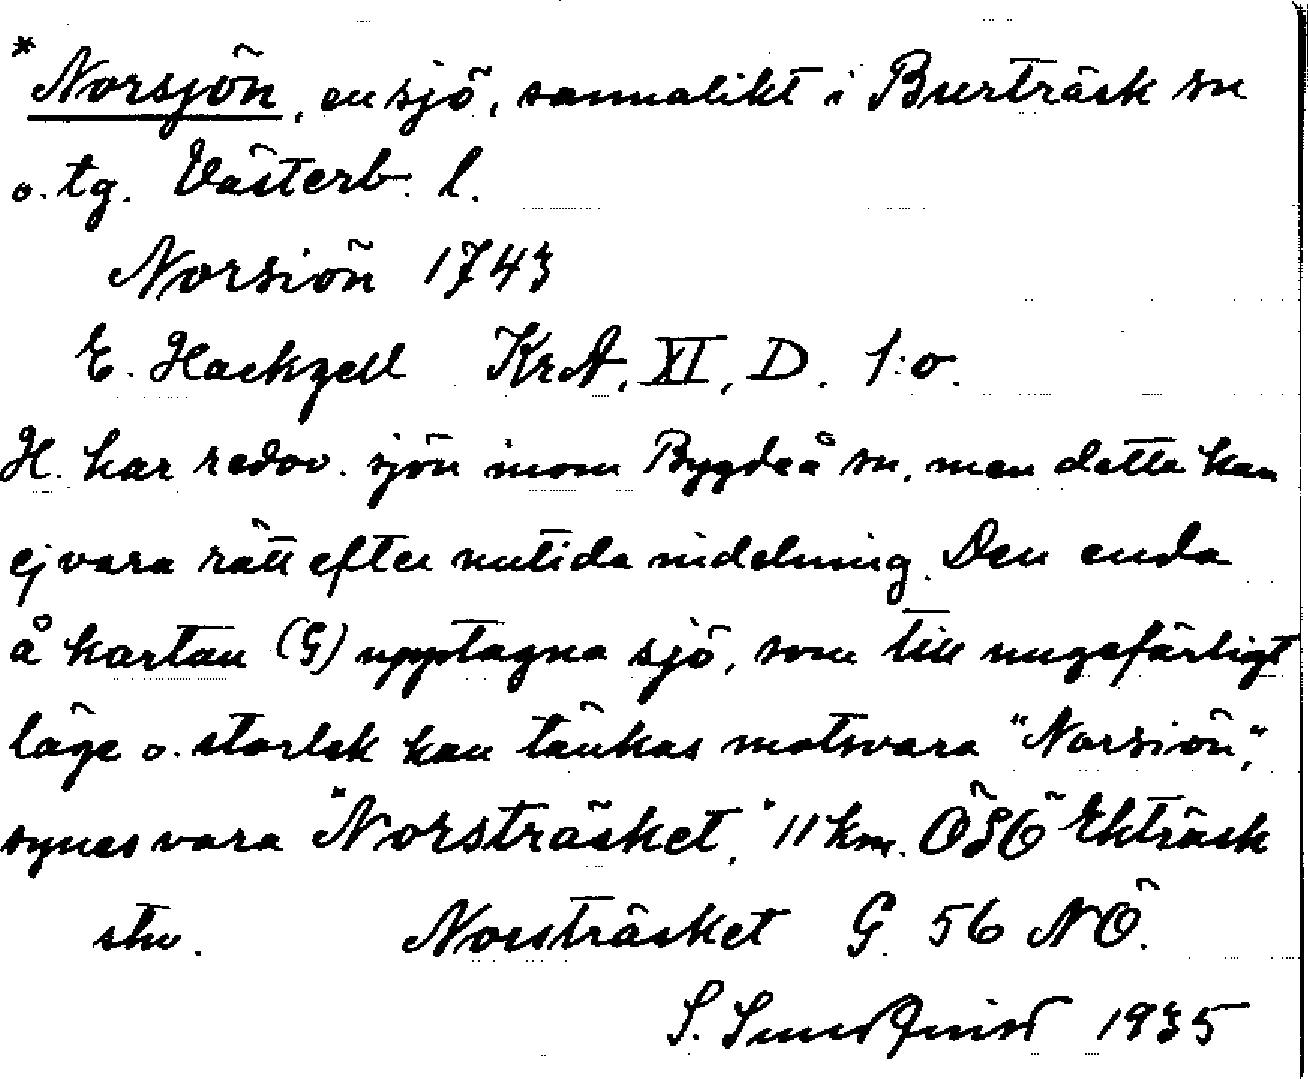 * Norsjön, en sjö, sannolikt i Burträsk sn
o. tg. Västerb. l.
Norsiön 1743
E. Hackzell KrA, XI, D. 1:o.
H. har redov. sjön inom Bygdeå sn, men detta kan
ej vara rätt efter nutida indelning. Den enda
å kartan (G) upptagna sjö, som till ungefärligt
läge o. storlek kan tänkas motsvara "Norsiön",
synes vara "Norsträsket," 11 km. ÖSÖ Ekträsk
stn. Norsträsket G. 56 NÖ.
S. Sundqvist 1935